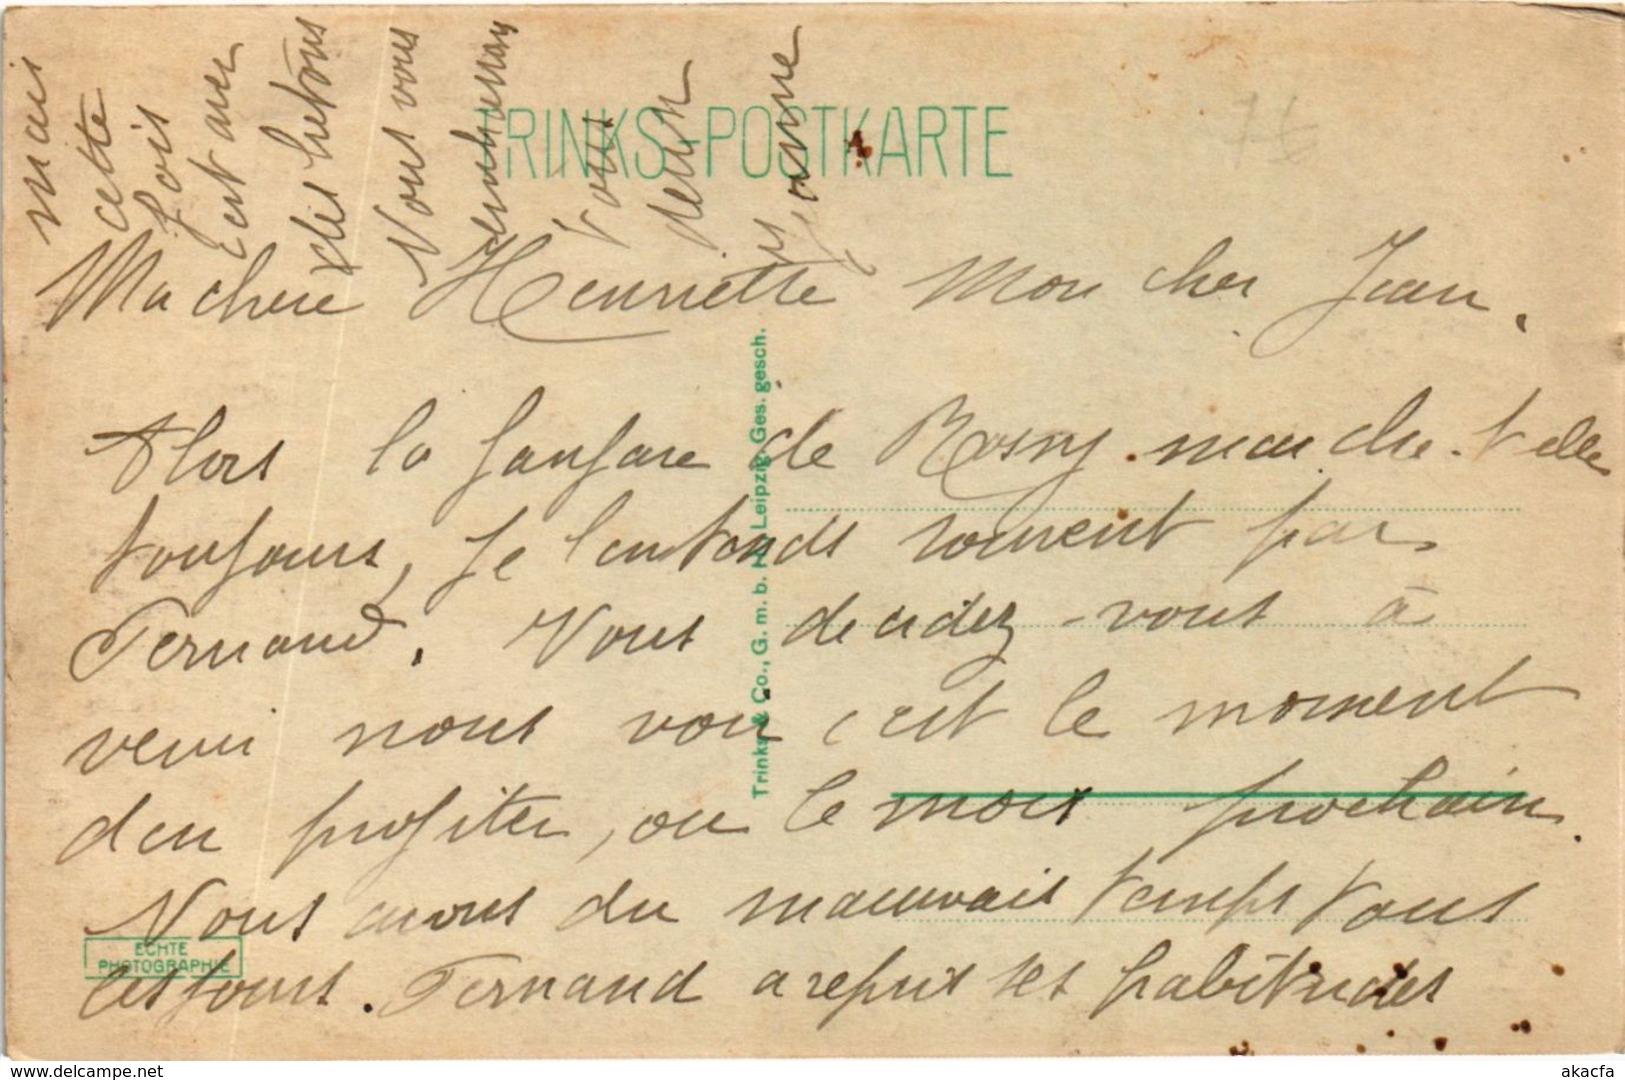 TRINKS-POSTKARTE
Ma chere Henriette Mon cher Jean.
Alors la fanfare de Rosny marche-t-elle
toujours, je l'entends souvent par
Fernand. Vous decidez-vous à
venir nous voir c'est le moment
d'en profiter, ou le mois prochain.
Nous avons du mauvais temps tous
ces jours. Fernand a repris ses habitudes
mais
cette
fois
c'est avec
des bretons
Nous vous
embrassons
Tous
deux
Yvonne
Trinks & Co., G. m. b. H. Leipzig. Ges. gesch.
ECHTE
PHOTOGRAPHIE
hippostcard.com
akacfa